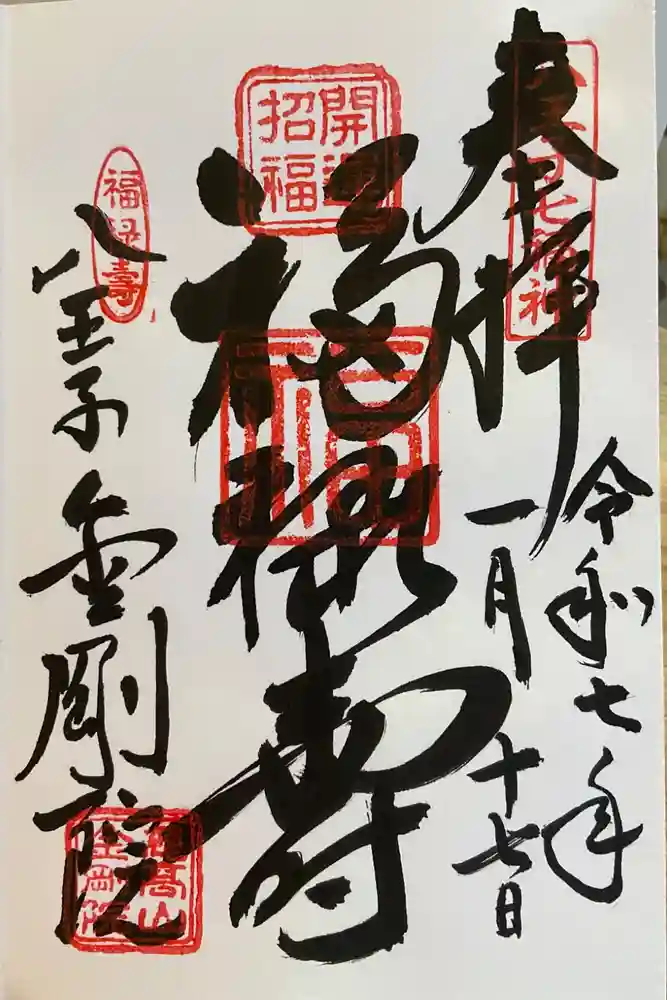 奉拝
八王子七福神
令和七年
一月十七日
開運招福
福禄壽
福禄壽
八王子 金剛院
慈高山金剛院